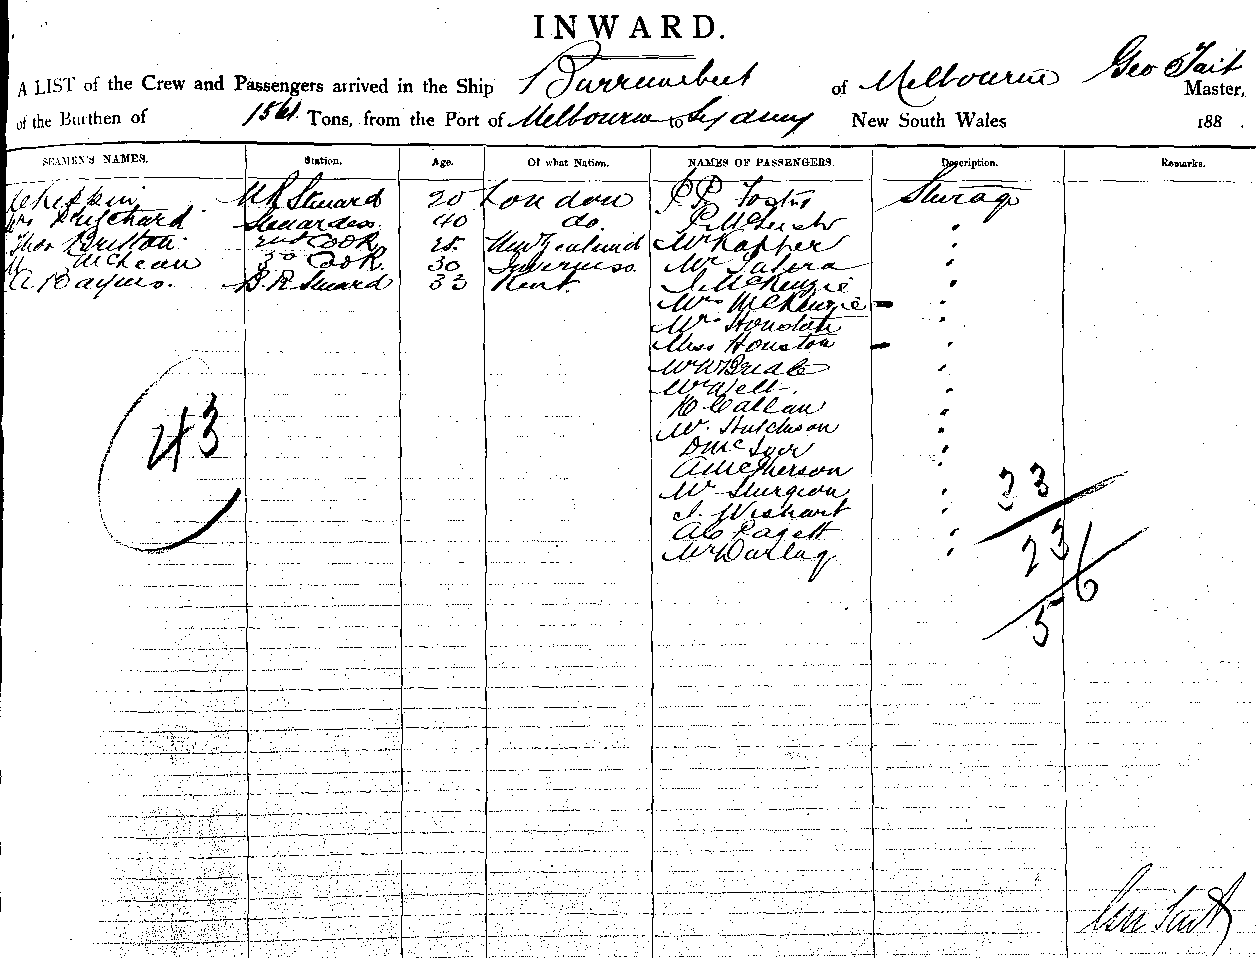 INWARD.
A LIST of the Crew and Passengers arrived in the Ship Burrumbeet of Melbourne Geo Tait Master,
of the Burthen of 1561 Tons, from the Port of Melbourne to Sydney New South Wales 188 .
SEAMEN'S NAMES. Station. Age. Of what Nation. NAMES OF PASSENGERS. Description. Remarks.
Steward 20 London Steerage
Mrs Pritchard Stewardess 40 do.
Thos Briston 2nd Cook 25 New Zealand Mr Kapper "
McLean 3d Cook 30 Inverness Mr "
A Baynes. B.R Steward 33 Kent J. McKenzie "
Mrs McKenzie - "
Mr Houston "
Miss Houston - "
"
Mr Welt "
Callan "
Hutchison "
D Mc "
A McPherson "
Mr Sturgeon "
J. Wishart "
Pagett "
Mr Darling "
43
33
23
56
Geo Tait